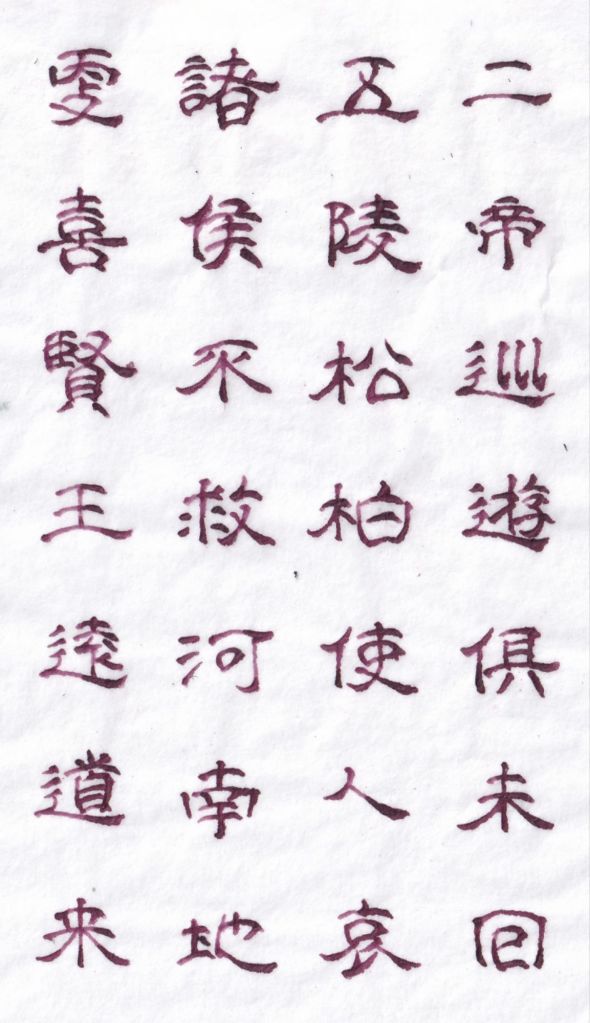 二帝巡遊俱未回
五陵松柏使人哀
諸侯不救河南地
更喜賢王遠道来